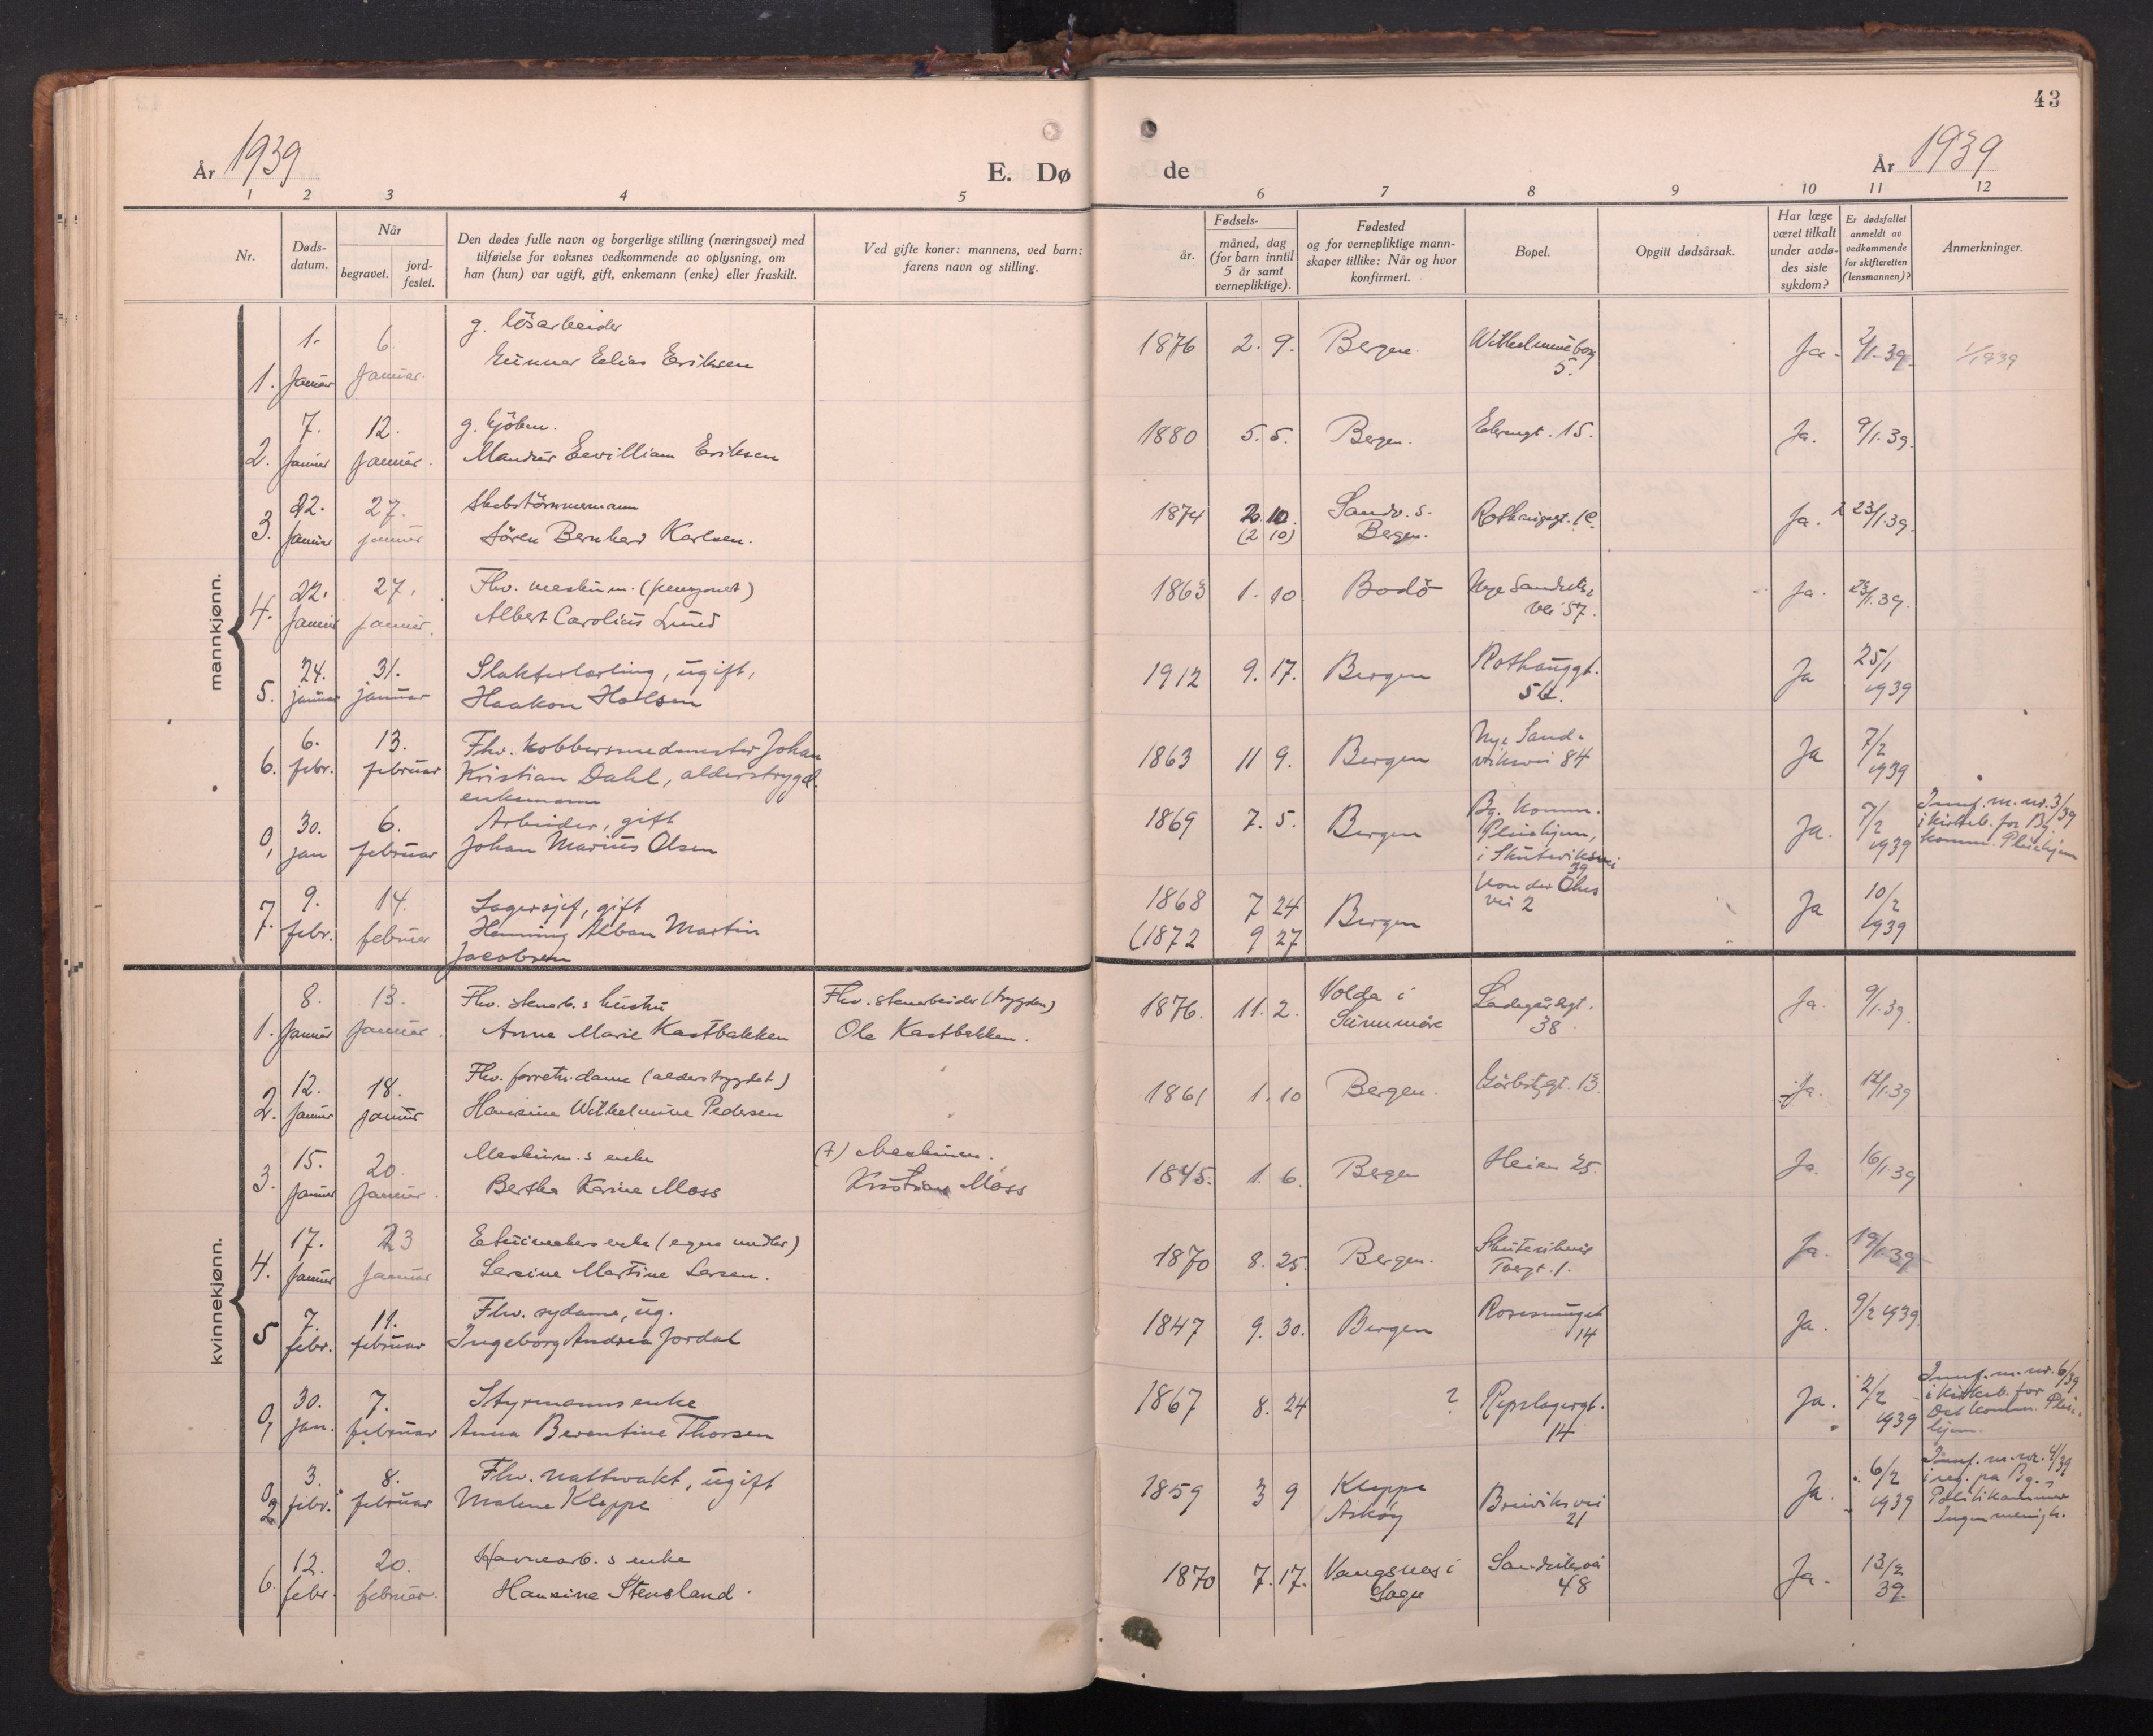 43
År 1939
E. Døde
År 1939
1 2 3 4 5 6 7 8 9 10 11 12
Nr.
Døds-
datum.
Når
begravet.
jord-
festet.
Den dødes fulle navn og borgerlige stilling (næringsvei) med
tilføielse for voksnes vedkommende av oplysning, om
han (hun) var ugift, gift, enkemann (enke) eller fraskilt.
Ved gifte koner: mannens, ved barn:
farens navn og stilling.
Fødsels-
år.
måned, dag
(for barn inntil
5 år samt
vernepliktige).
Fødested
og for vernepliktige mann-
skaper tillike: Når og hvor
konfirmert.
Bopel.
Opgitt dødsårsak.
Har læge
været tilkalt
under avdø-
des siste
sykdom?
Er dødsfallet
anmeldt av
vedkommende
for skifteretten
(lensmannen)?
Anmerkninger.
mannkjønn.
1. 1. januar 6. januar. g. løsarbeider
Gunnar Elias Eriksen
1876 2. 9. Bergen. Wilhelmineborg
5. Ja. 2/1-39.
2. 7. januar 12. januar. g.
Eriksen
1880 5. 5. Bergen. 15. Ja. 9/1.39.
3. 22. januar 27. januar Skibstömmermann
Sören Bernhard Karlsen.
1874 2. 10. (2 10) Sandv. s.
Bergen. Ja. 23/1.39.
4. 22. januar 27. januar. Fhv. maskinm. (pensjonert)
Albert Carolius Lund
1863 1. 10 Bodö Nye Sandviks
vei 57. Ja. 23/1.39.
5. 24. januar 31. januar Slakterlærling, ugift,
Haakon Holsen
1912 9. 17. Bergen Rothauggt.
Ja 25/1
1939
6. 6. febr. 13. februar Fhv. kobbersmedmester Johan
Kristian Dahl, alderstrygd.
enkemann
1863 11 9. Bergen Nye Sand-
viksvei 84 Ja 7/2
1939
0, 30. jan 6. februar Arbeider, gift
Johan Marius Olsen
1869 7. 5. Bergen Bg. komm.
Pleiehjem,
i Skuteviksvei
39 Ja. 7/2
1939 Innf. m. nr. 3/39
i kirkeb. for Bg.
komm. Pleiehjem
7. 9. febr. 14. februar Lagersjef, gift
Henning Alban Martin
Jacobsen
1868 7 24
(1872 9 27
Bergen von der Öhes
vei 2 Ja 10/2
1939
kvinnekjønn.
1. 8. januar 13. januar. Fhv. stenarb.s hustru
Anne Marie Kastbakken
Fhv. stenarbeider (trygden)
Ole Kastbakken.
1876. 11. 2. Volda i
Sunnmöre Ladegårdsgt.
38. Ja. 9/1.39.
2. 12. januar 18. januar Fhv. forretn.dame (alderstrygdet)
Hansine Wilhelmine Pedersen
1861 1. 10 Bergen. 13. Ja. 12/1.39
3. 15. januar 20. januar. Maskinm.s enke
Bertha Karine Moss
(†) Maskinm.
Kristian Moss
1845. 1. 6. Bergen Heien 25. Ja. 16/1.39
4. 17. januar 23 januar Etuimakers enke (egne midler)
Larsine Martine Larsen.
1870 8. 25. Bergen. Skuteviks
Torgt. 1. Ja. 19/1.39
5 7. febr. 11. februar Fhv. sydame, ug.
Ingeborg Andrea Jordal
1847 9. 30. Bergen
14 Ja. 9/2 1939.
0, 30. jan. 7. februar Styrmannsenke
Anna Berentine Thorsen
1867 8. 24 ? Repslagergt.
14 Ja. 2/2
1939 Innf. m. nr. 6/39
i kirkeb. for
Det komm. Pleie-
hjem.
0, 2 3. febr. 8. februar Fhv. nattvakt, ugift
Malene Kleppe
1859 3 9 Kleppe
Askøy Breiviksvei
21 Ja. 6/2
1939 Innf. m. nr. 4/39
i reg. på Bg.s
Politikammer
Ingen menigh.
6. 12. febr. 20. februar. Havnearb.s enke
Hansine Stensland.
1870 7. 17. Vangsnes i
Sogn Sandviksvei
48 Ja. 13/2
39.